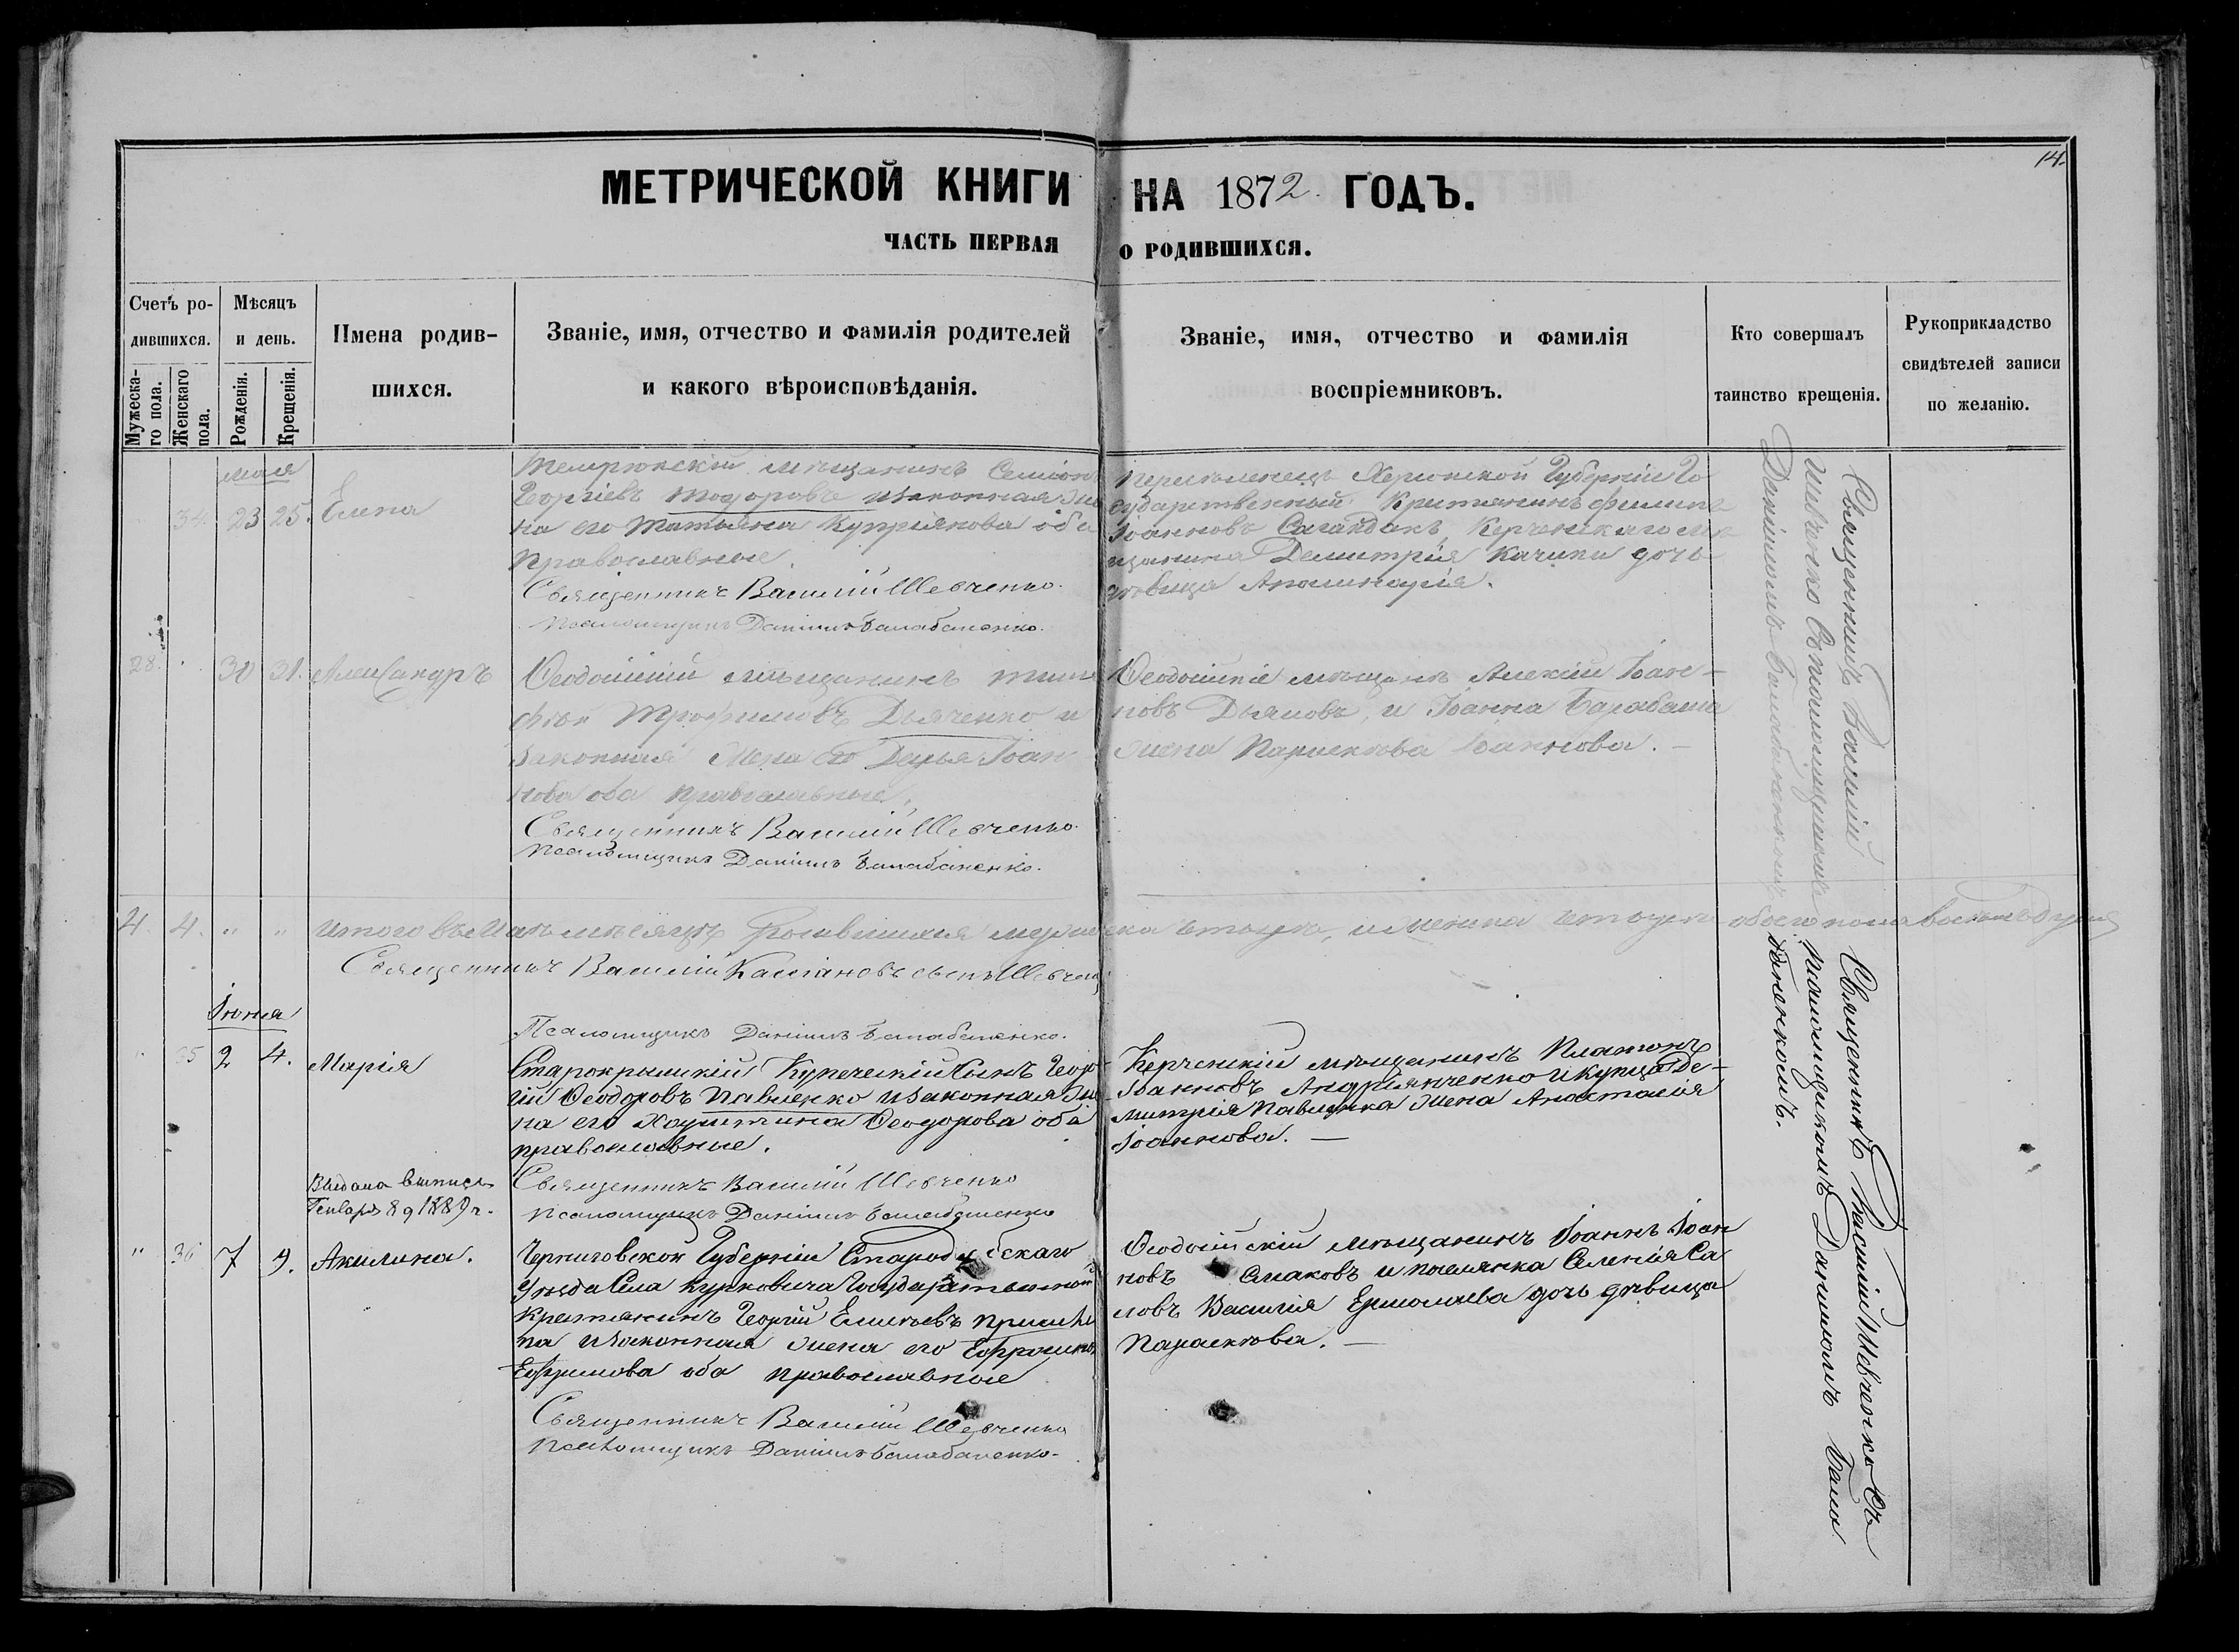 14.
МЕТРИЧЕСКОЙ КНИГИ НА 1872 ГОДЪ.
ЧАСТЬ ПЕРВАЯ О РОДИВШИХСЯ.
Счетъ ро-
дившихся.
Мужеска-
го пола.
Женскаго
пола.
Мѣсяцъ
и день.
Рожденія.
Крещенія.
Имена родив-
шихся.
Званіе, имя, отчество и фамилія родителей
и какого вѣроисповѣданія.
Званіе, имя, отчество и фамилія
воспріемниковъ.
Кто совершалъ
таинство крещенія.
Рукоприкладство
свидѣтелей записи
по желанію.
мая
34. 23 25. Елена
Темрюкскій мѣщанинъ Семіонъ
Георгіевъ Тодоровъ и законная же
на его Татьяна Купріянова оба
православные.
Священникъ Василій Шевченко.
Псаломщикъ Даніилъ Балабаненко.
Переселенецъ Херсонской Губерніи Го
сударственный Крестьянинъ Филипъ
Іоанновъ Сагайдакъ, Керченскаго мѣ
щанина Димитрія Качипи дочь
дѣвица Аполинарія.
Священникъ Василій
Шевченко съ псаломщикомъ
Даніиломъ Балабаненкомъ
28. 30 31. Александръ
Ѳеодосійскій мѣщанинъ Тимо
фей Трофимовъ Дьяченко и
законная жена его Дарья Іоан
нова оба православные.
Священникъ Василій Шевченко.
Псаломщикъ Даніилъ Балабаненко.
Ѳеодосійскіе мѣщане Алексій Іоан-
новъ Дьяковъ, и Іоанна Барабаша
жена Параскева Іоаннова. —
4. 4. " " Итого въ Маѣ мѣсяцѣ родившихся мужеска четыре, и женска четыре обоего пола восемь душъ
Священникъ Василій Кассіановъ сынъ Шевчен
Псаломщикъ Даніилъ Балабаненко.
Іюня
" 35 2 4. Марія
Старокрымскій Купеческій Сынъ Геор
гій Ѳеодоровъ Павленко и законная же
на его Харитина Ѳеодорова оба
православные.
Священникъ Василій Шевченко
Псаломщикъ Даніилъ Балабаненко
Керченскій мѣщанинъ Платонъ
Іоанновъ Андріянченко и купца Ди-
митрія Павленка жена Анастасія
Іоаннова. —
Выдана выпись
Генваря 8 д 1889 г.
" 36 7 9. Акилина.
Черниговской Губерніи Стародубскаго
уѣзда Села Курковича Государственной
крестьянинъ Георгій Емильевъ
на и законная жена его Ефросинія
Ефримова оба православные
Священникъ Василій Шевченко
Псаломщикъ Даніилъ Балабаненко.
Ѳеодосійскій мѣщанинъ Іоаннъ Іоан
новъ Смаковъ и поселянка Селенія Са
ловъ Василія Ермолаева дочь дѣвица
Параскева. —
Священникъ Василій Шевченко съ
псаломщикомъ Даніиломъ Бала
баненкомъ.